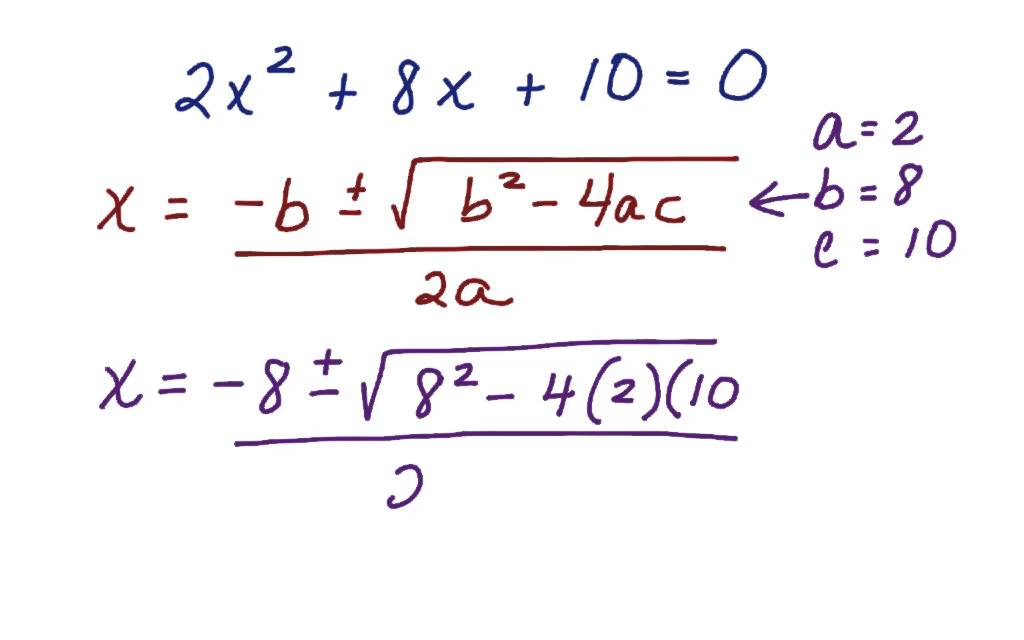 2x² + 8x + 10 = 0
a = 2
x = -b ± √(b² - 4ac) / 2a
b = 8
c = 10
x = -8 ± √8² - 4(2)(10